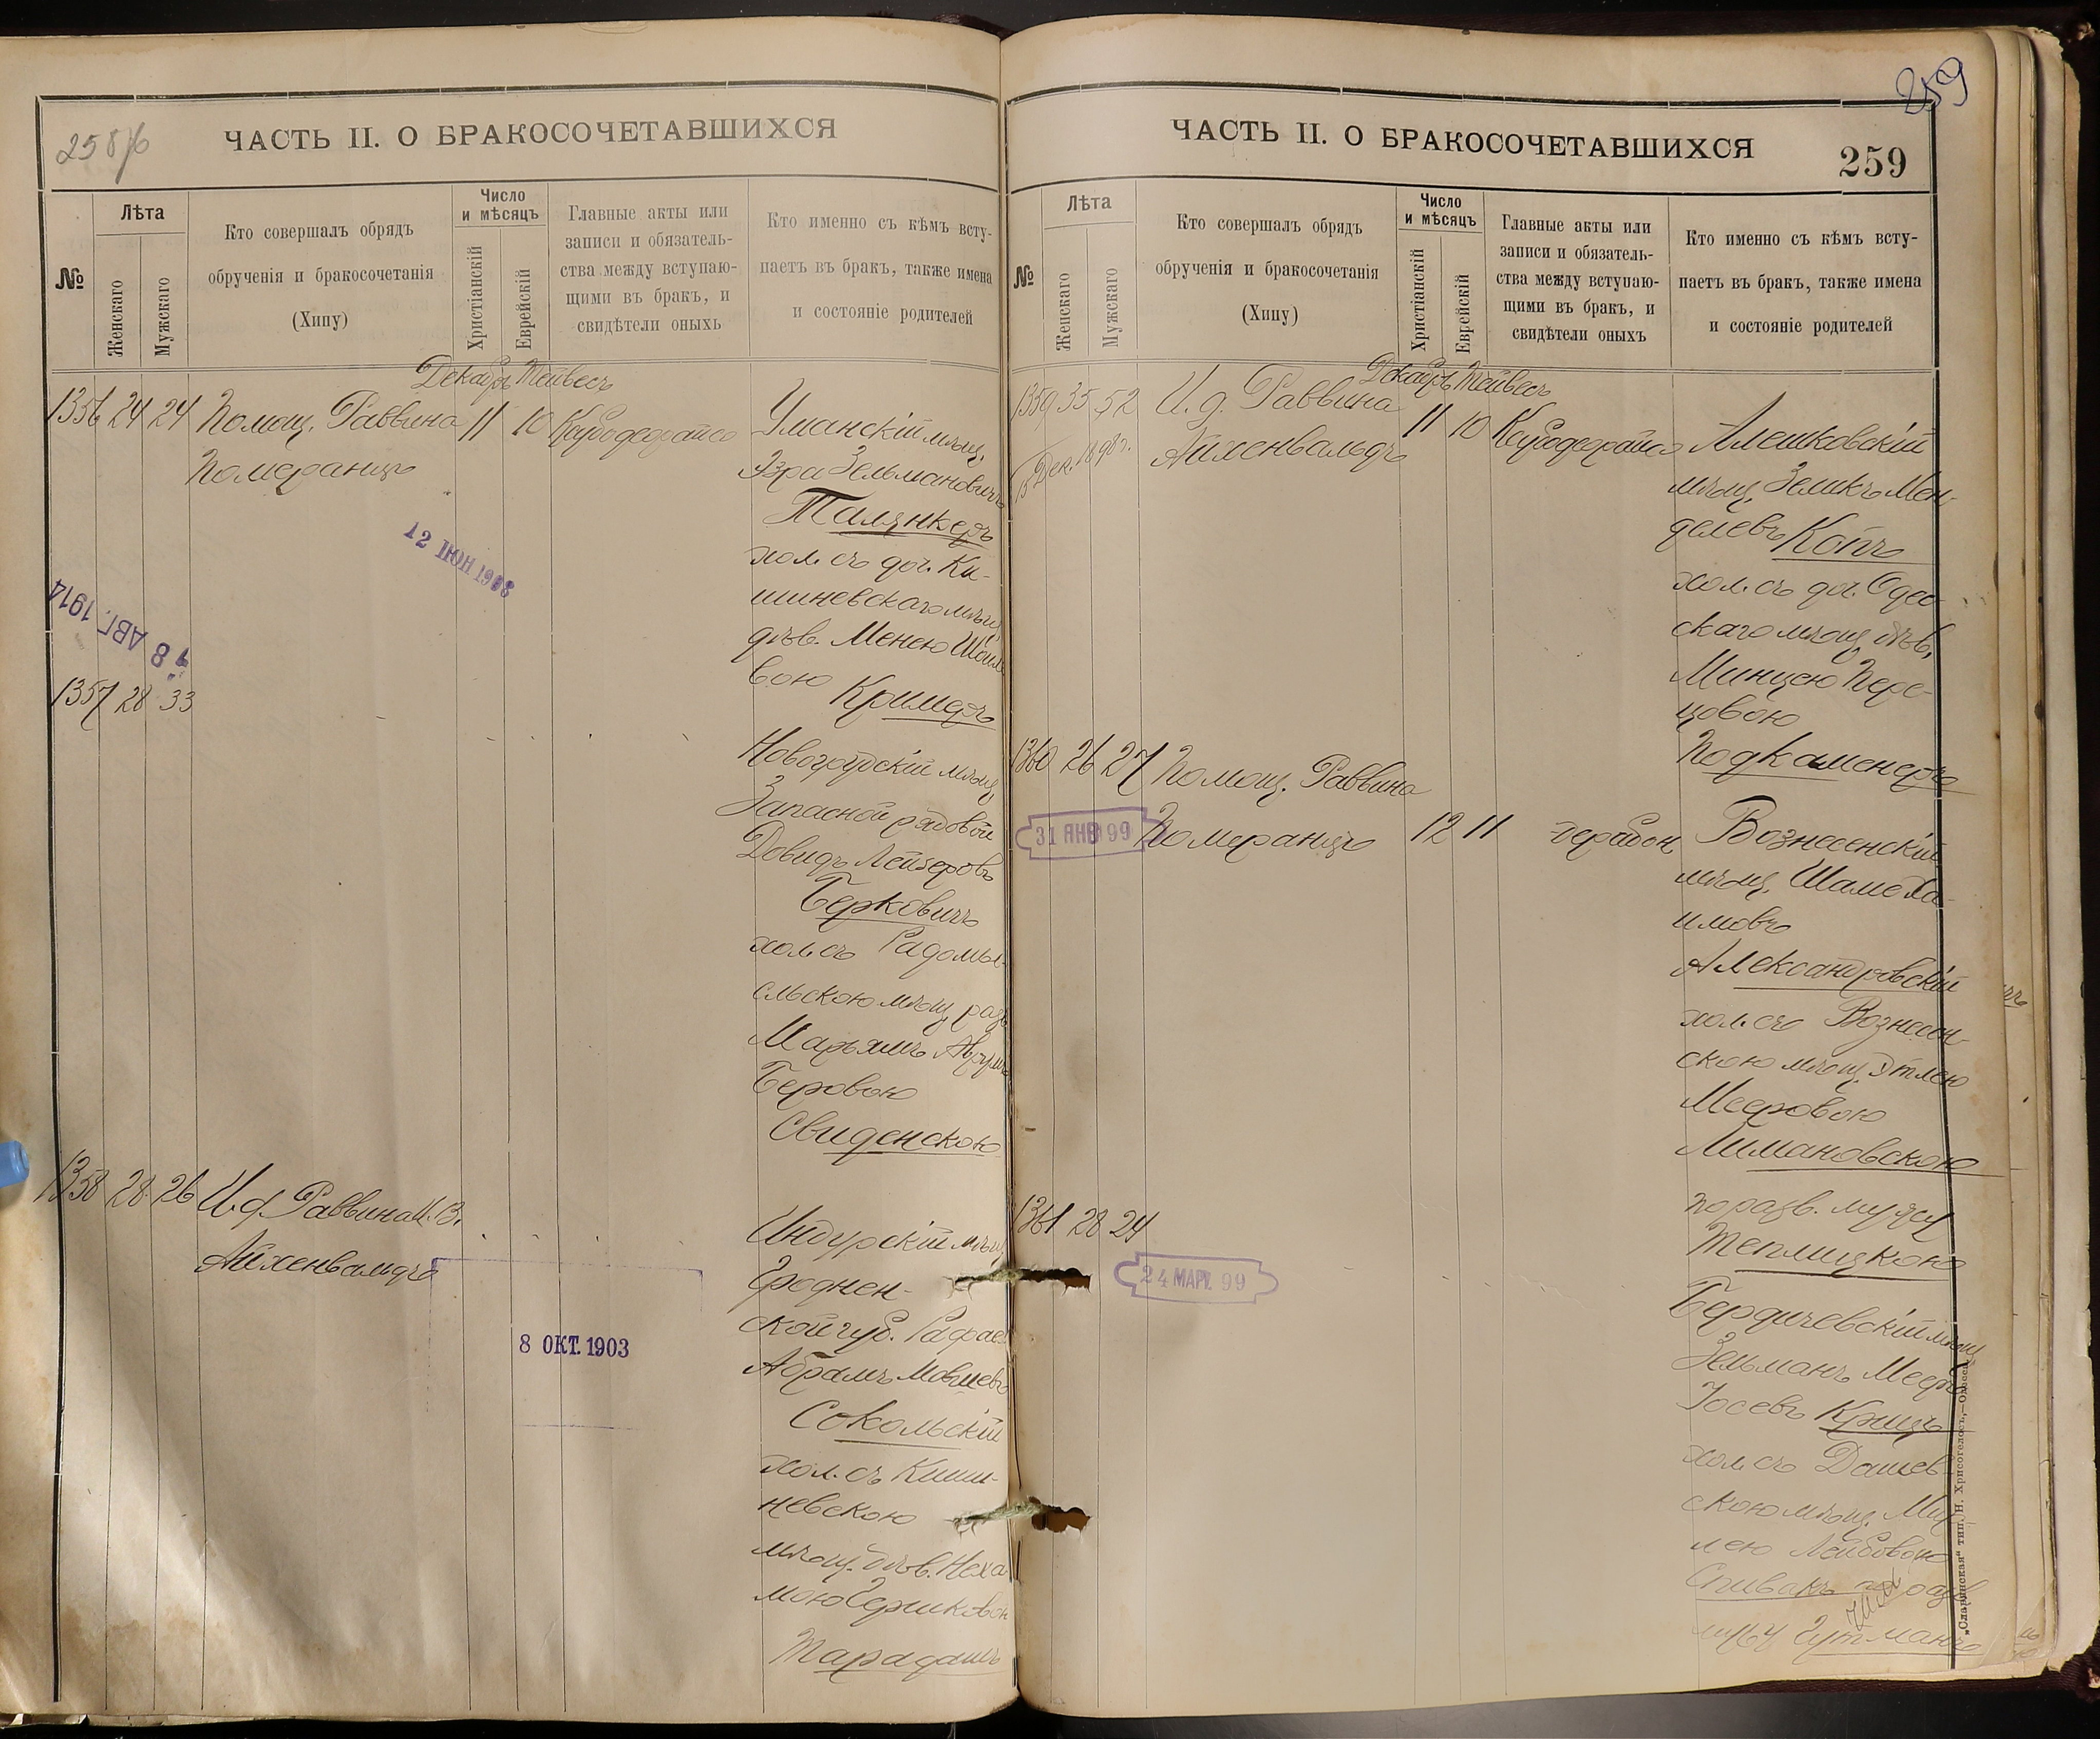 258 об
ЧАСТЬ II. О БРАКОСОЧЕТАВШИХСЯ
№
Лѣта
Женскаго
Мужскаго
Кто совершалъ обрядъ
обрученія и бракосочетанія
(Хипу)
Число
и мѣсяцъ
Христіанскій
Еврейскій
Главные акты или
записи и обязатель-
ства между вступаю-
щими въ бракъ, и
свидѣтели оныхъ
Кто именно съ кѣмъ всту-
паетъ въ бракъ, также имена
и состояніе родителей
Декабрь Тейвесъ
1356 24 24 Помощ. Раввина 11 10
Померанцъ
12 ІЮН 1908
18 АВГ. 1914
Уманскій мѣщ.
Эзра Зельмановичъ
Талянкеръ
хол. съ доч. Ки-
шиневскаго мѣщ.
дѣв. Менею Шоило-
вою
Кримеръ
1357 28 33
мѣщ.
Запасной рядовой
Довидъ Лейзеровъ
Берковичъ
хол. съ Радомы-
сльскою мѣщ. разв.
Марьямъ
Беровою
Свиденскою
1358 28 26 И. д. Раввина
Айхенвальдъ
8 ОКТ. 1903
Индурскій мѣщ.
Гроднен-
ской губ. Рафаел
Абрамъ Мовшевъ
Сокольскій
хол. съ Киши-
невскою
мѣщ. дѣв. Неха-
мою
Тарадашъ
259
ЧАСТЬ II. О БРАКОСОЧЕТАВШИХСЯ
259
№
Лѣта
Женскаго
Мужскаго
Кто совершалъ обрядъ
обрученія и бракосочетанія
(Хипу)
Число
и мѣсяцъ
Христіанскій
Еврейскій
Главные акты или
записи и обязатель-
ства между вступаю-
щими въ бракъ, и
свидѣтели оныхъ
Кто именно съ кѣмъ всту-
паетъ въ бракъ, также имена
и состояніе родителей
Декабрь Тейвесъ
1359 35 52 И. д. Раввина 11 10
15 Дек. 1898 г.
Айхенвальдъ
Алешковскій
мѣщ. Зеликъ Мен-
делевъ Копъ
хол. съ доч. Одес-
скаго мѣщ. дѣв.
Минцею Пере-
цовою
Подкаменеръ
1360 26 27 Помощ. Раввина
Померанцъ 12 11
31 ЯНВ 99
Вознесенскій
мѣщ. Шаме Ха-
имовъ
Александровскій
хол. съ Вознесен-
скою мѣщ. Этлею
Мееровою
Лимановскою
по разв. мужу
Теплицкою
1361 28 24
24 МАРТ. 99
Бердичевскій мѣщ.
Зельманъ Мееръ
Іосевъ Крицъ
хол. съ Дашев-
скою мѣщ.
лею Лейбовою
Спивакъ по разв.
мужу Гутманъ
„Славянская“ тип. Н. Хрисогелосъ,—Одесса.